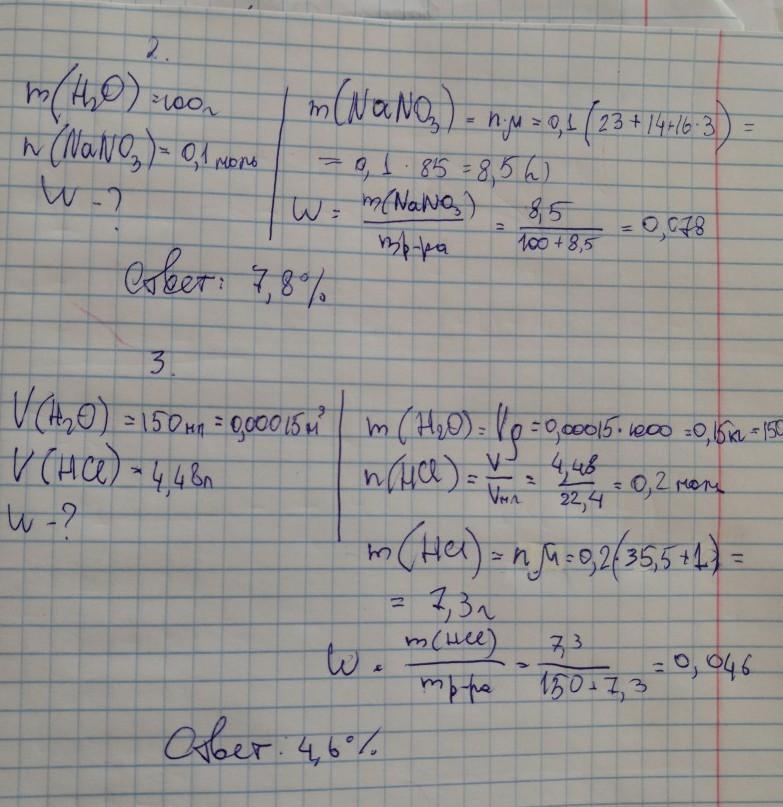 2.
m(H₂O) = 100г
n(NaNO₃) = 0,1 моль
W - ?
m(NaNO₃) = n·M = 0,1(23+14+16·3) =
= 0,1 · 85 = 8,5 (г)
W = m(NaNO₃)/mр-ра = 8,5/(100+8,5) = 0,078
Ответ: 7,8%
3.
V(H₂O) = 150мл = 0,00015м³
V(HCl) = 4,48л
W - ?
m(H₂O) = Vρ = 0,00015·1000 = 0,15кг = 150
n(HCl) = V/Vмл = 4,48/22,4 = 0,2 моль
m(HCl) = n·M = 0,2(35,5+1) =
= 7,3г
W = m(HCl)/mр-ра = 7,3/(150+7,3) = 0,046
Ответ: 4,6%